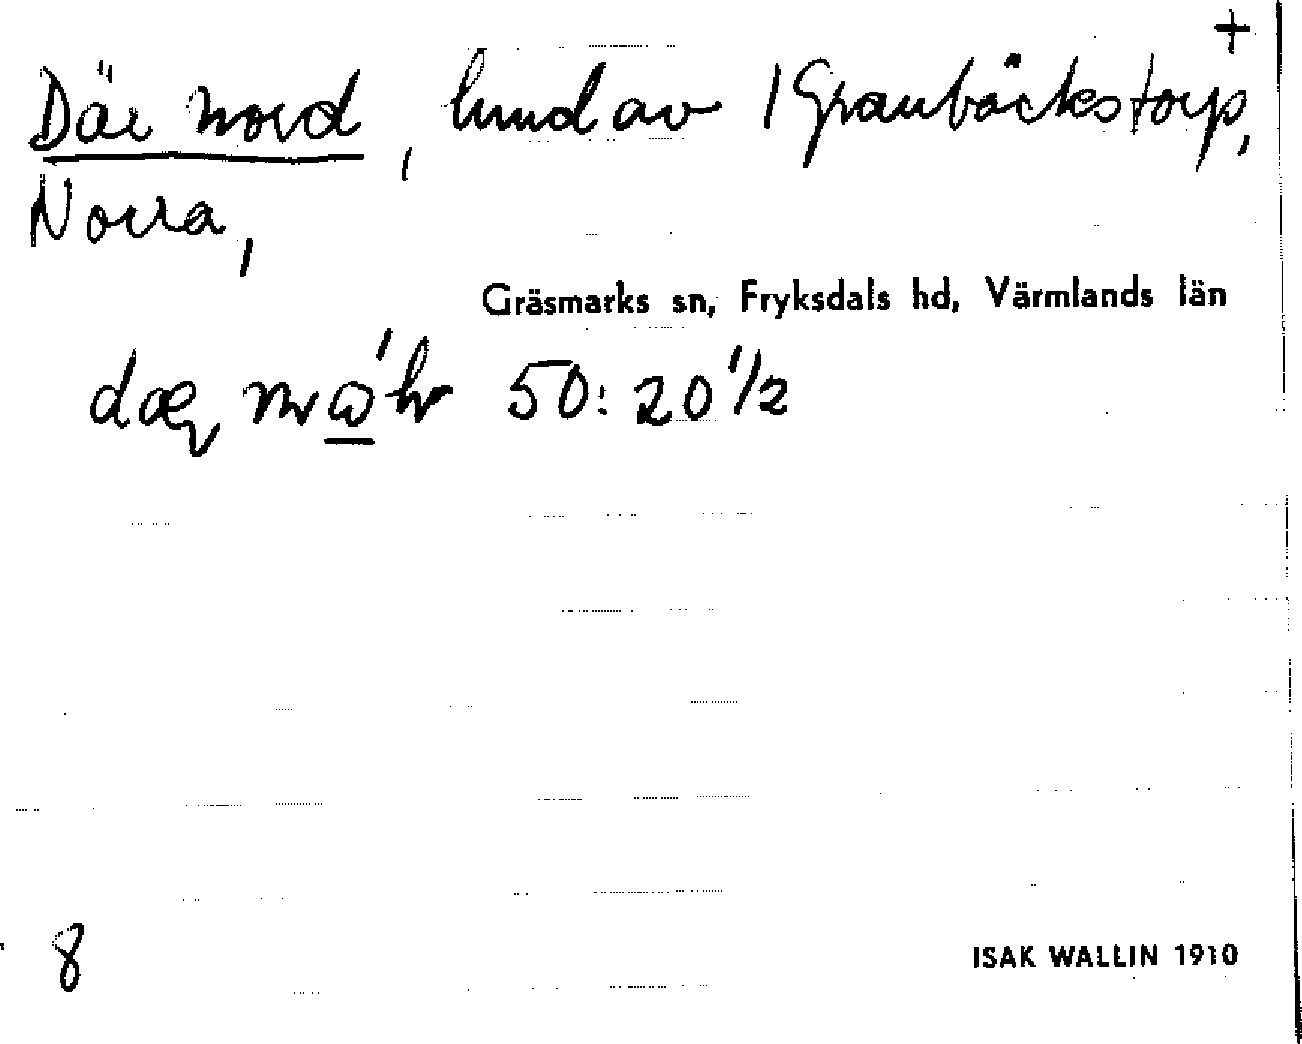 +
Där nord, hund av 1 Granbäckstorp,
Norra,
Gräsmarks sn, Fryksdals hd, Värmlands län
50: 20 1/2
8
ISAK WALLIN 1910